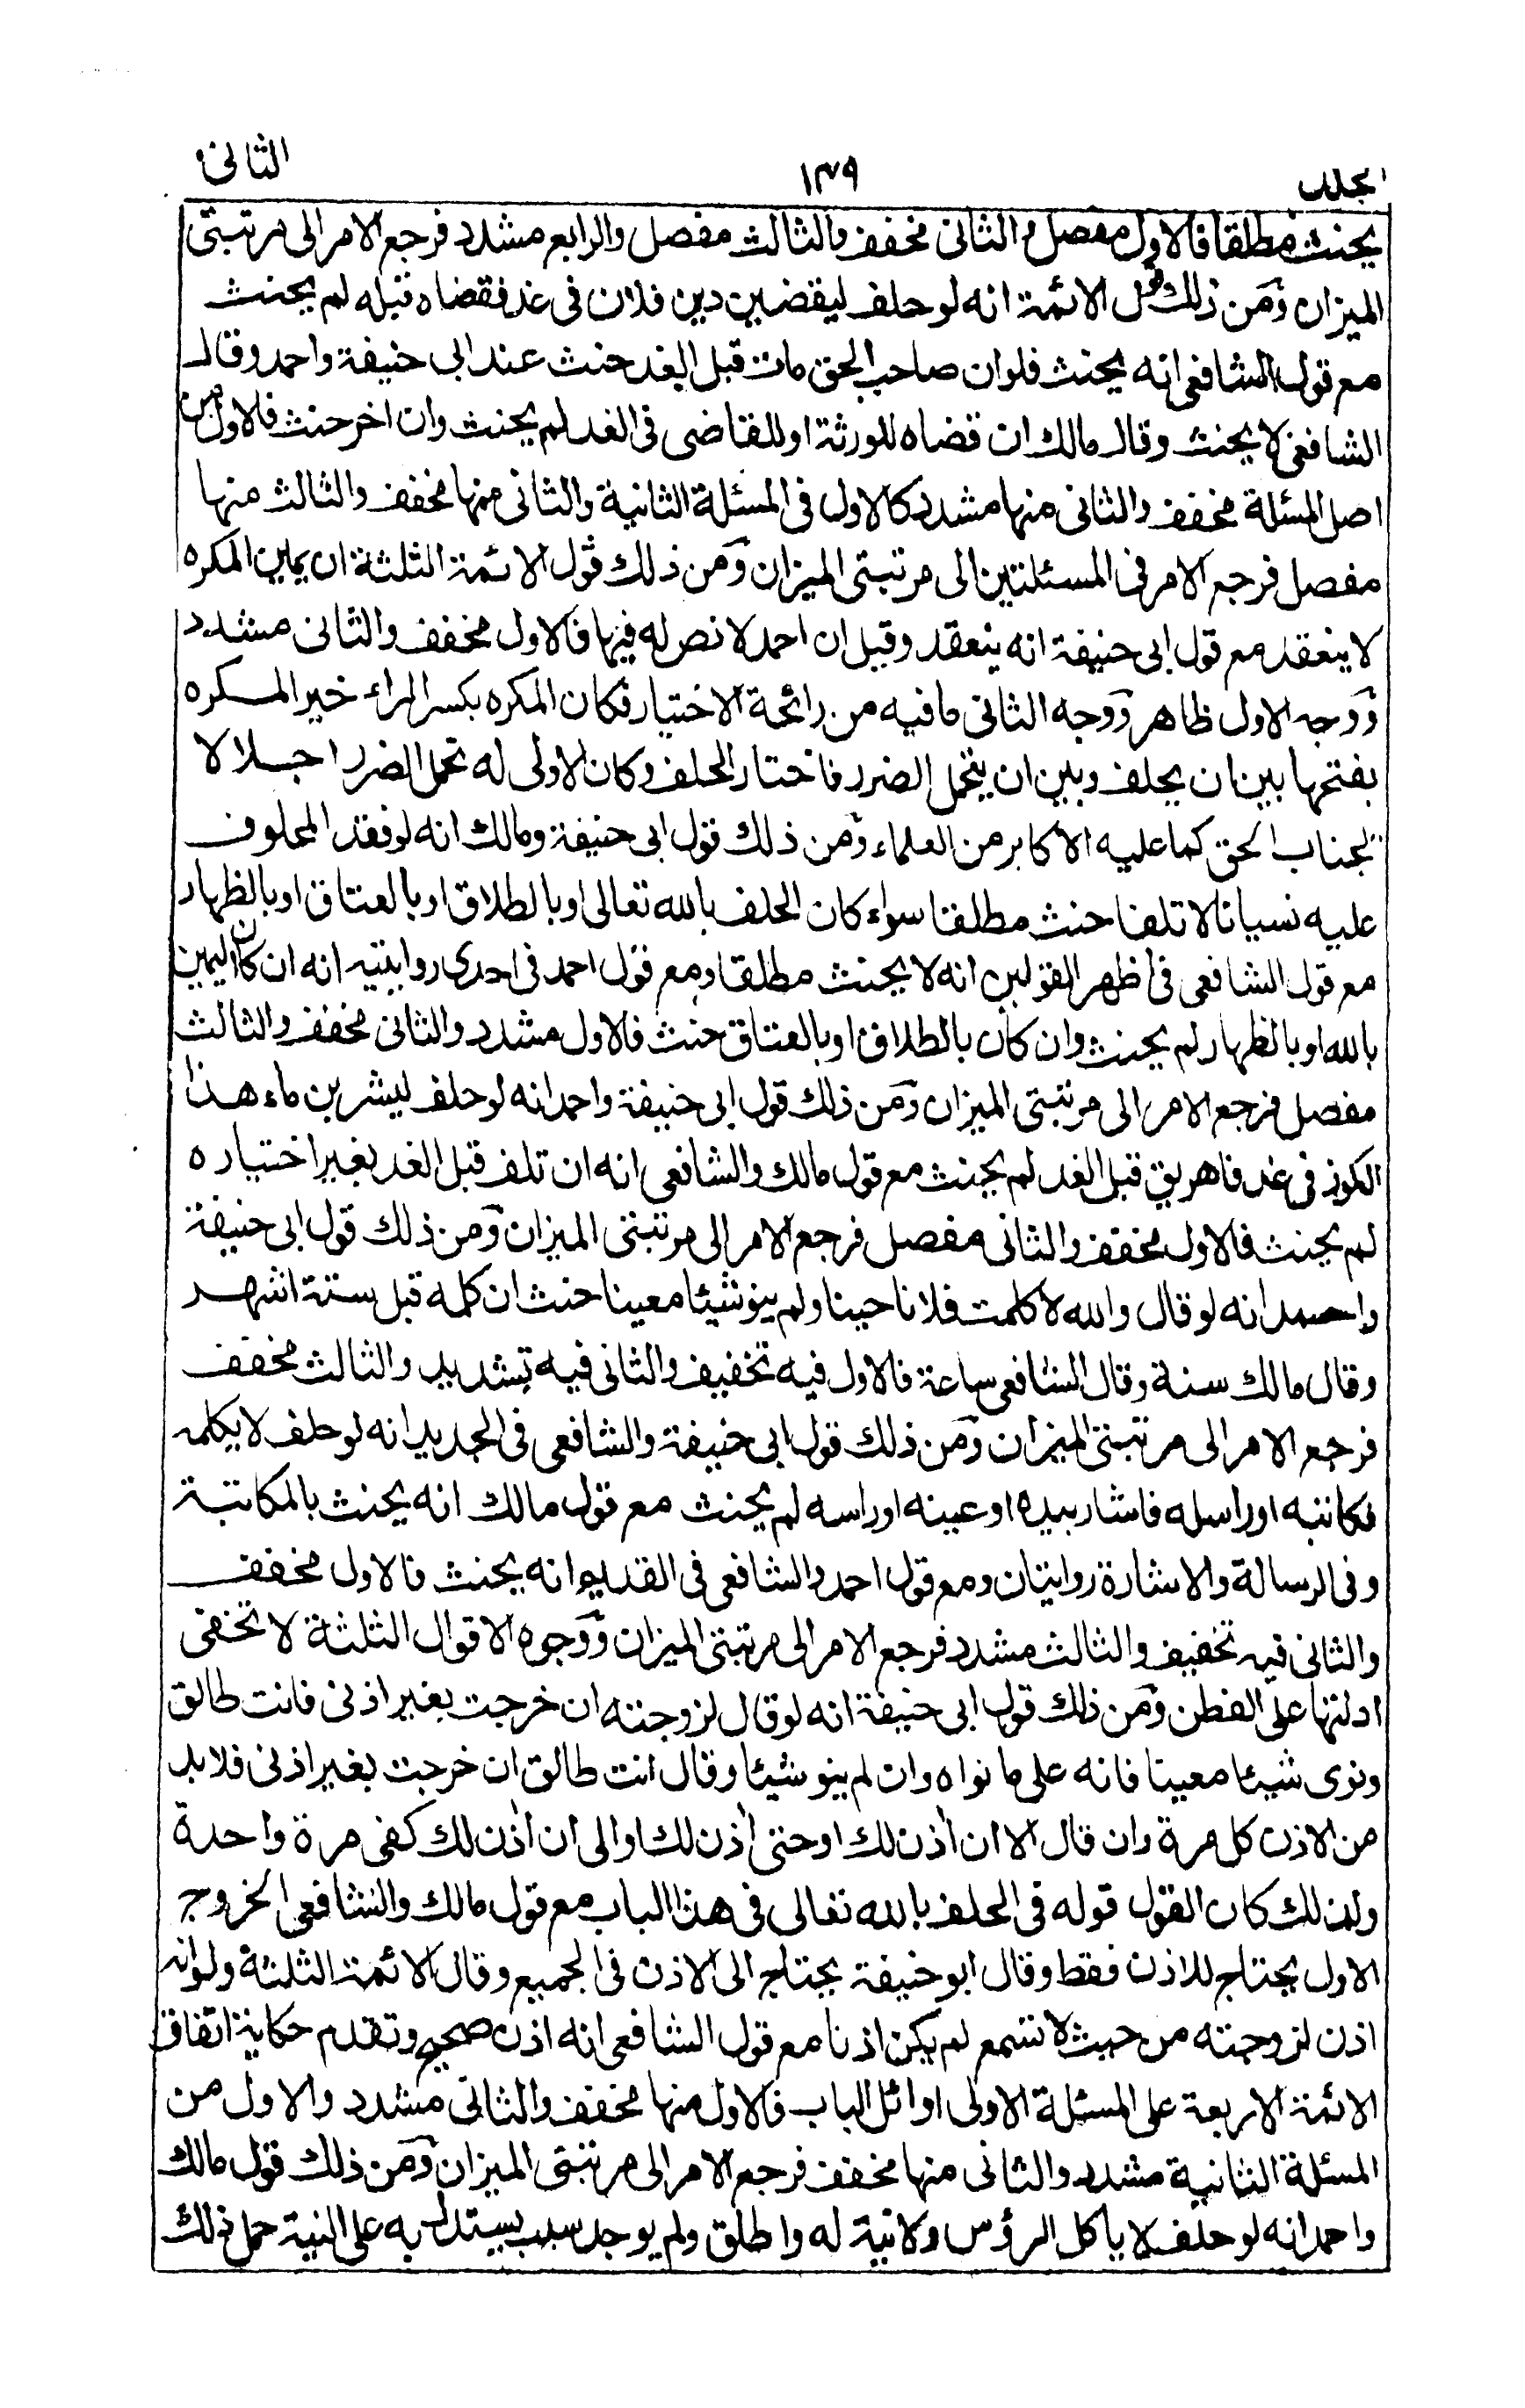 الجلد ١٣٩ الثانى
يحنث مطلقا فالاول مفصل والثانى مخفف والثالث مفصل والرابع مشدد فرجع الامر الى مرتبتى
الميزان ومن ذلك قول الائمة انه لو حلف ليقضين دين فلان فى غد فقضاه قبله لم يحنث
مع قول الشافعى انه يحنث فلو ان صاحب الحق مات قبل الغد حنث عند ابى حنيفة واحمد وقال
الشافعى لا يحنث وقال مالك ان قضاه للورثة او للقاضى فى الغد لم يحنث وان اخر حنث فالاول من
اصل المسئلة مخفف والثانى منها مشدد كالاول فى المسئلة الثانية والثانى منها مخفف والثالث منها
مفصل فرجع الامر فى المسئلتين الى مرتبتى الميزان ومن ذلك قول الائمة الثلثة ان يمين المكره
لا ينعقد مع قول ابى حنيفة انه ينعقد وقيل ان احمد لا نص له فيها فالاول مخفف والثانى مشدد
ووجه الاول ظاهر ووجه الثانى ما فيه من رائحة الاختيار فكان المكره بكسر الراء خير المكره
بفتحها بين ان يحلف وبين ان يتحمل الضرر فاختار الحلف وكان الاولى له تحمل الضرر اجلالا
لجناب الحق كما عليه الاكابر من العلماء ومن ذلك قول ابى حنيفة ومالك انه لو فقد المحلوف
عليه نسيانا لا تلفا حنث مطلقا سواء كان الحلف بالله تعالى او بالطلاق او بالعتاق او بالظهار
مع قول الشافعى فى اظهر القولين انه لا يحنث مطلقا ومع قول احمد فى احدى روايتيه انه ان كان اليمين
بالله او بالظهار لم يحنث وان كان بالطلاق او بالعتاق حنث فالاول مشدد والثانى مخفف والثالث
مفصل فرجع الامر الى مرتبتى الميزان ومن ذلك قول ابى حنيفة واحمد انه لو حلف ليشربن ماء هذا
الكوز فى غد فاهريق قبل الغد لم يحنث مع قول مالك والشافعى انه ان تلف قبل الغد بغير اختياره
لم يحنث فالاول مخفف والثانى مفصل فرجع الامر الى مرتبتى الميزان ومن ذلك قول ابى حنيفة
واحمد انه لو قال والله لا كلمت فلانا حينا ولم ينو شيئا معينا حنث ان كلمه قبل ستة اشهر
وقال مالك سنة وقال الشافعى ساعة فالاول فيه تخفيف والثانى فيه تشديد والثالث مخفف
فرجع الامر الى مرتبتى الميزان ومن ذلك قول ابى حنيفة والشافعى فى الجديد انه لو حلف لا يكلمه
فكاتبه او راسله فاشار بيده او عينه او راسه لم يحنث مع قول مالك انه يحنث بالمكاتبة
وفى الرسالة والاشارة روايتان ومع قول احمد والشافعى فى القديم انه يحنث فالاول مخفف
والثانى فيه تخفيف والثالث مشدد فرجع الامر الى مرتبتى الميزان ووجوه الاقوال الثلثة لا تخفى
ادلتها على الفطن ومن ذلك قول ابى حنيفة انه لو قال لزوجته ان خرجت بغير اذنى فانت طالق
ونوى شيئا معينا فانه على ما نواه وان لم ينو شيئا وقال انت طالق ان خرجت بغير اذنى فلا بد
من الاذن كل مرة وان قال الا ان اذن لك او حتى اذن لك او الى ان اذن لك كفى مرة واحدة
ولذلك كان القول قوله فى الحلف بالله تعالى فى هذا الباب مع قول مالك والشافعى الخروج
الاول يحتاج للاذن فقط وقال ابو حنيفة يحتاج الى الاذن فى الجميع وقال الائمة الثلثة ولو انه
اذن لزوجته من حيث لا تسمع لم يكن اذنا مع قول الشافعى انه اذن صحيح وتقدم حكاية اتفاق
الائمة الاربعة على المسئلة الاولى اوائل الباب فالاول منها مخفف والثانى مشدد والاول من
المسئلة الثانية مشدد والثانى منها مخفف فرجع الامر الى مرتبتى الميزان ومن ذلك قول مالك
واحمد انه لو حلف لا ياكل الرؤس ولا نية له واطلق ولم يوجد سبب يستدل به على النية حمل ذلك